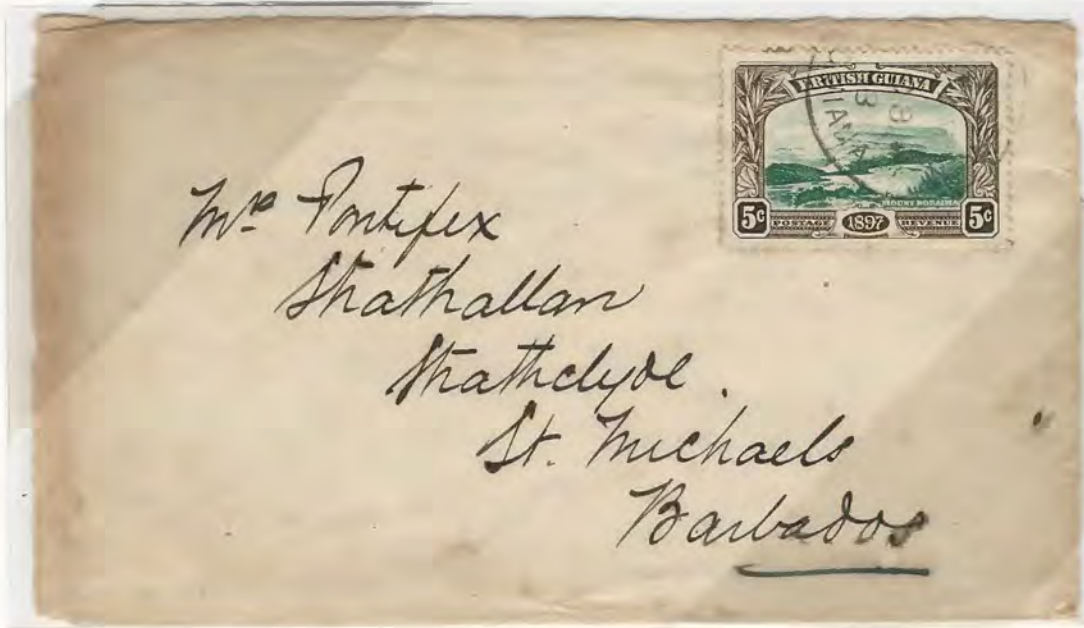 BRITISH GUIANA
MOUNT RORAIMA
5c POSTAGE 1897 REVENUE 5c
Mrs Pontifex
Strathallan
Strathclyde.
St. Michaels
Barbados